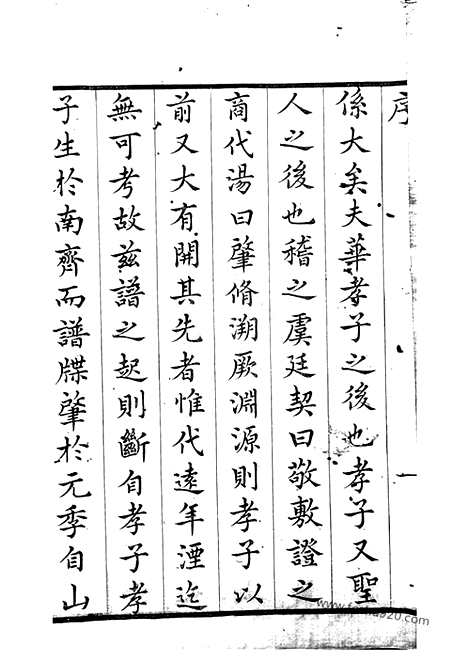 序
係大矣夫華孝子之後也孝子又聖
人之後也稽之虞廷契曰敬敷證之
商代湯曰肇脩溯厥淵源則孝子以
前又大有開其先者惟代遠年湮迄
無可考故茲譜之起則斷自孝子孝
子生於南齊而譜牒肇於元季自山
一